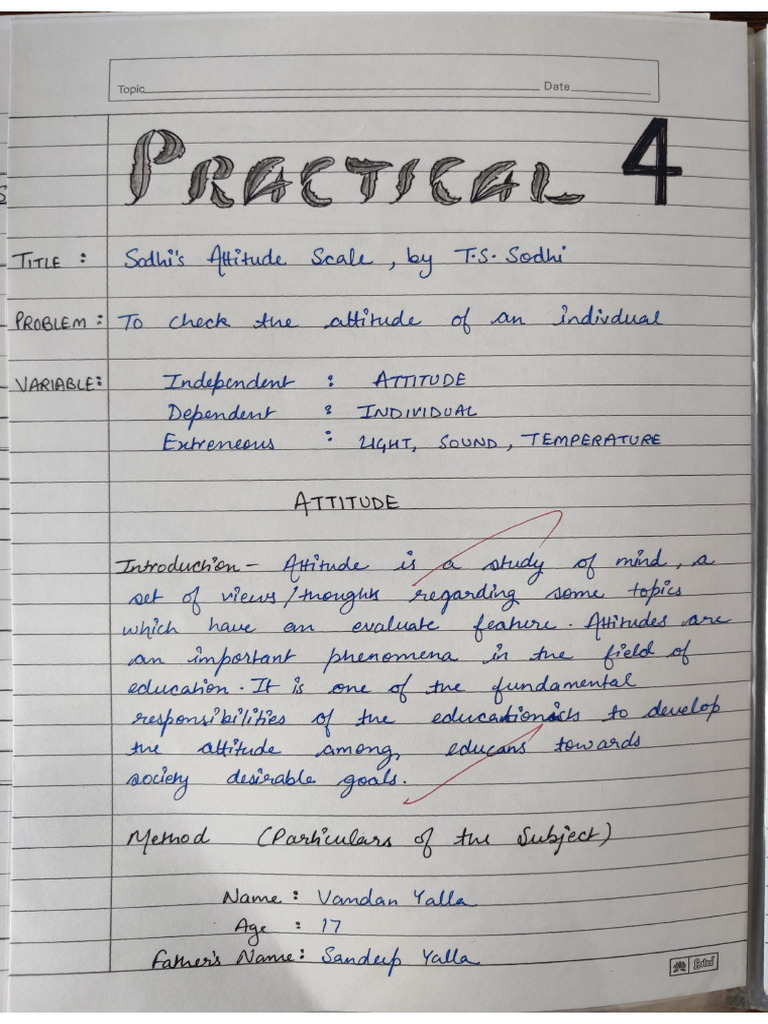 Topic Date
PRACTICAL 4
TITLE : Sodhi's Attitude Scale, by T.S. Sodhi
PROBLEM : To check the attitude of an indivdual
VARIABLE: Independent : ATTITUDE
Dependent : INDIVIDUAL
Extreneous : LIGHT, SOUND, TEMPERATURE
ATTITUDE
Introduction - Attitude is a study of mind, a
set of views/thoughts regarding some topics
which have an evaluate feature. Attitudes are
an important phenomena in the field of
education. It is one of the fundamental
responsibilities of the educationists to develop
the attitude among, educans towards
society desirable goals.
Method (Particulars of the Subject)
Name : Vandan Yalla
Age : 17
Father's Name: Sandeep Yalla